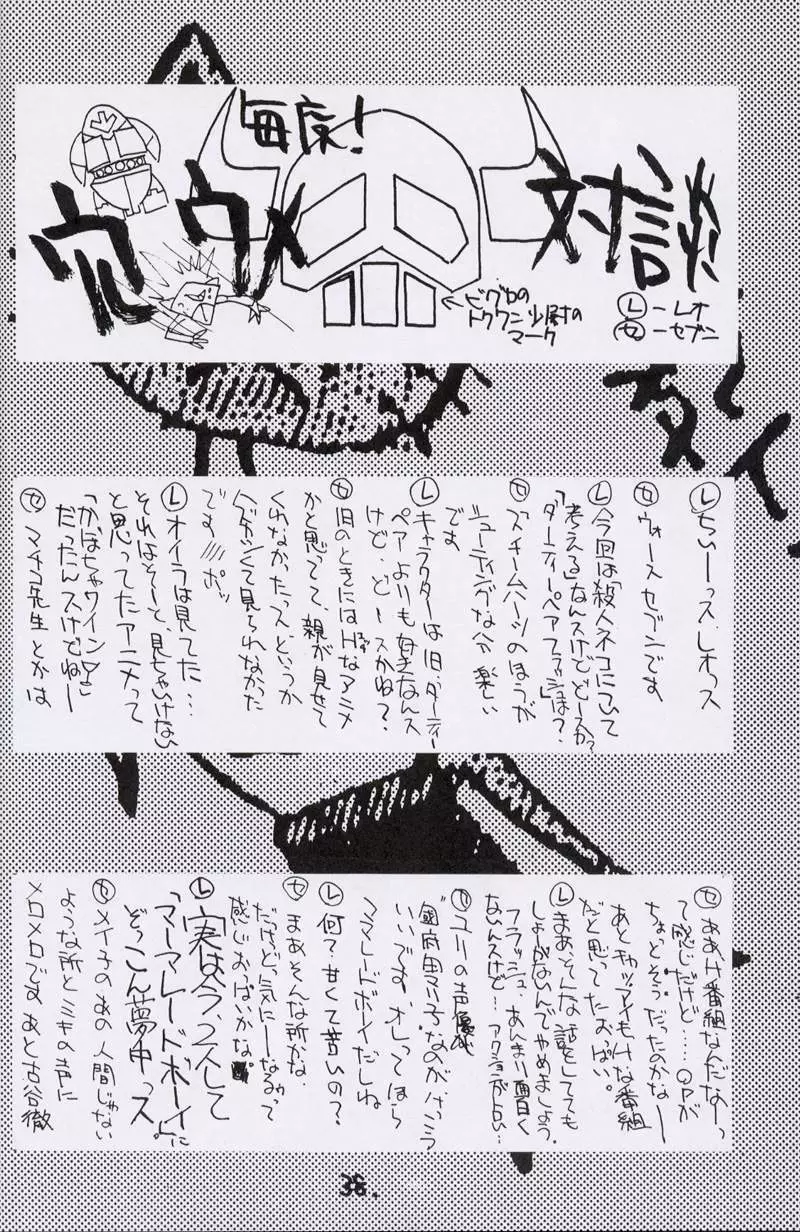 毎度!
ウメ
対談
←ビグロの
トクワン少尉の
マーク
Ⓛ-レオ
セ-セブン
Ⓛちぃーっス、レオっス
セ ウォースセブンです
Ⓛ今回は「殺人ネコについて
考える」なんスけどどースか?
「ダーティーペアフラッシュ」は?
セ ズチームハーツのほうが
シューティングな分楽しい
です
Ⓛキャラクターは旧、ダーティー
ペアよりも好きなんス
けど、どースかね?
セ 旧のときにはHなアニメ
かと思ってて、親が見せて
くれなかったっス、というか
ハズカシくて見られなかった
です///ポッ
Ⓛオイラは見てた…
それはそーと、見ちゃいけない
と思ってたアニメって
「かぼちゃワイン♡」
だったんスけどねー
セ マチコ先生とかは
セ ああH番組なんだなーっ
て感じだけど…QPが
ちょっとそうだったのかなー
あとキャッツアイもHな番組
だと思ってたおっぱい。
Ⓛまあ、そんな話をしてても
しょーがないんでやめましょう。
フラッシュ、あんまり面白く
ないんスけど…アクションが古い…
セ ユリの声優が
"國府田マリ子"なのがけっこう
いいです、オレってほら
ママレードボイだしね
Ⓛ何?甘くて苦いの?
セ まあそんな所かな、
だけど気にーなるぅって
感じおっぱいかな。
Ⓛ実は今、2人して
「マーマレードボーイ」に
ぞっこん夢中っス
セ メイ子のあの人間じゃない
ような所とミキの声に
メロメロです あと古谷徹
38.